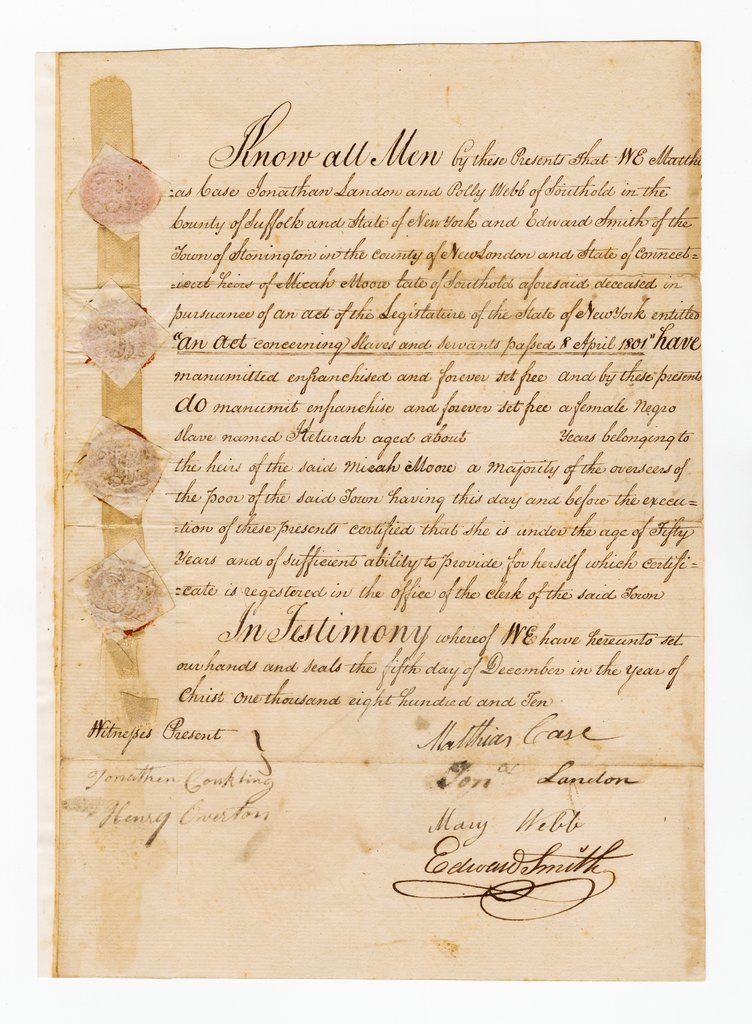 Know all Men by these Presents That WE Matthi
=as Case Jonathan Landon and Polly Webb of Southold in the
County of Suffolk and State of New York and Edward Smith of the
Town of Stonington in the county of New London and State of Connect=
=icut heirs of Micah Moore late of Southold aforesaid deceased in
pursuance of an act of the Legislature of the State of New York entitled
"an act concerning Slaves and servants passed 8 April 1801" have
manumitted enfranchised and forever set free and by these presents
do manumit enfranchise and forever set free a female Negro
slave named Keturah aged about Years belonging to
the heirs of the said Micah Moore a majority of the overseers of
the poor of the said Town having this day and before the execu=
=tion of these presents certified that she is under the age of Fifty
Years and of sufficient ability to provide for herself which certifi=
=cate is regestered in the office of the clerk of the said Town
In Testimony whereof WE have hereunto set
our hands and seals the fifth day of December in the Year of
Christ One thousand eight hundred and Ten
Witnesses Present
Matthias Case
Jonathan Conkling
Jonan Landon
Henry Overton
Mary Webb
Edward Smith